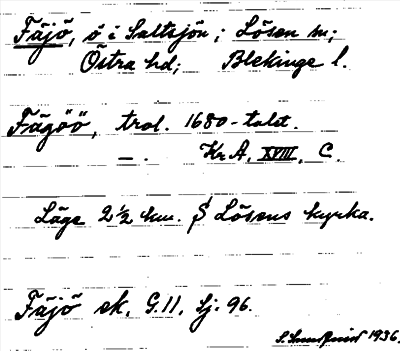 Fäjö, ö i Saltsjön; Lösen sn;
Östra hd; Blekinge l.
Fägöö, trol. 1680-talet.
—. Kr A, XVIII, C.
Läge 2 ½ km. S Lösens kyrka.
Fäjö ek. G. 11, Sj. 96.
1936.